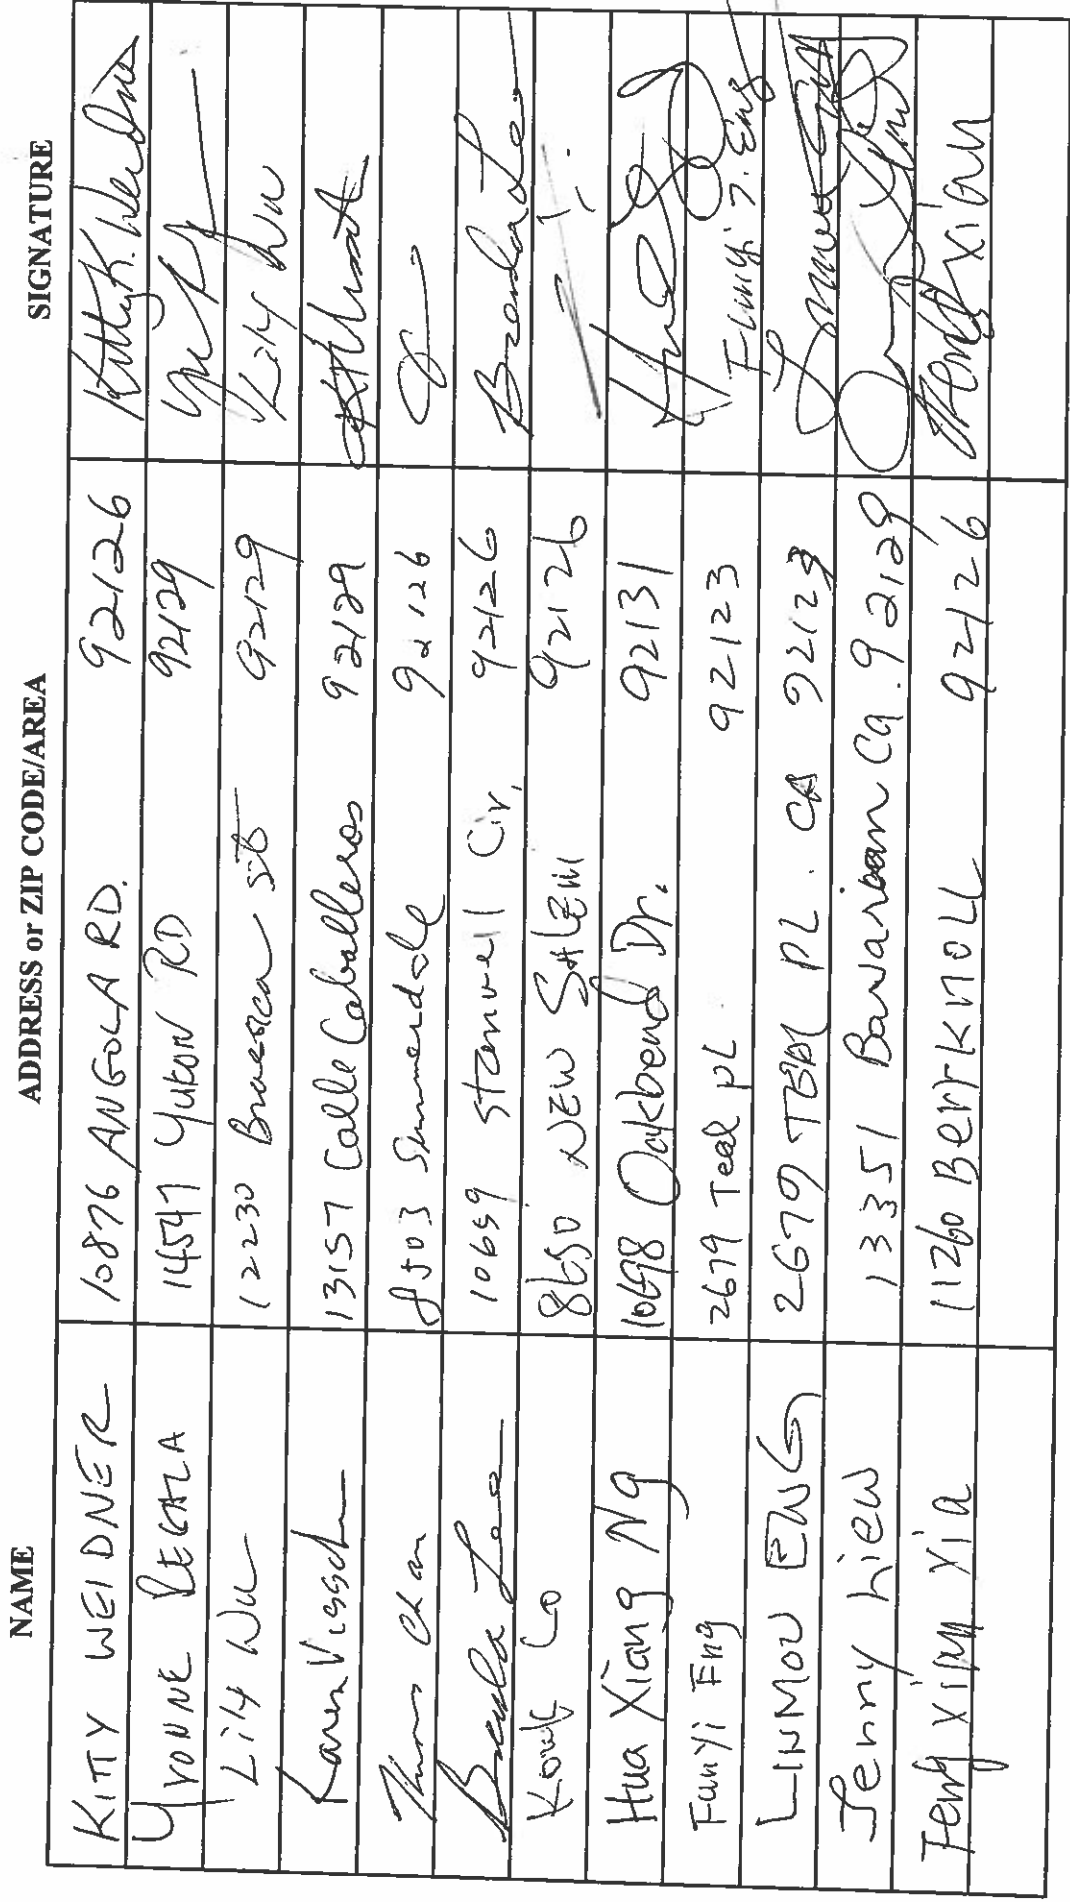 NAME ADDRESS or ZIP CODE/AREA SIGNATURE
KITTY WEIDNER 10876 ANGOLA RD. 92126 Kitty K. Weidner
YVONNE REGALA 14547 YUKON RD 92129
Lily Wu 12230 st 92129 Lily Wu
Karen Vissch 13157 Calle Caballeros 92129
Thomas Chan 8503 Summerdale 92126
Brenda Lee 10659 Stanwell Cir. 92126 Brenda Lee
Kowk Lo 8650 NEW SALEM 92126
Hua Xiang Ng 10698 Oakbend Dr. 92131
Funyi Eng 2679 Teal pL 92123 Funyi J. Eng
LINMOU ENG 2679 TEAL PL. CA 92123
Jenny Liew 13351 Ca. 92129
Feng Xian Xia 11260 BerrKnoLL 92126 Feng Xian